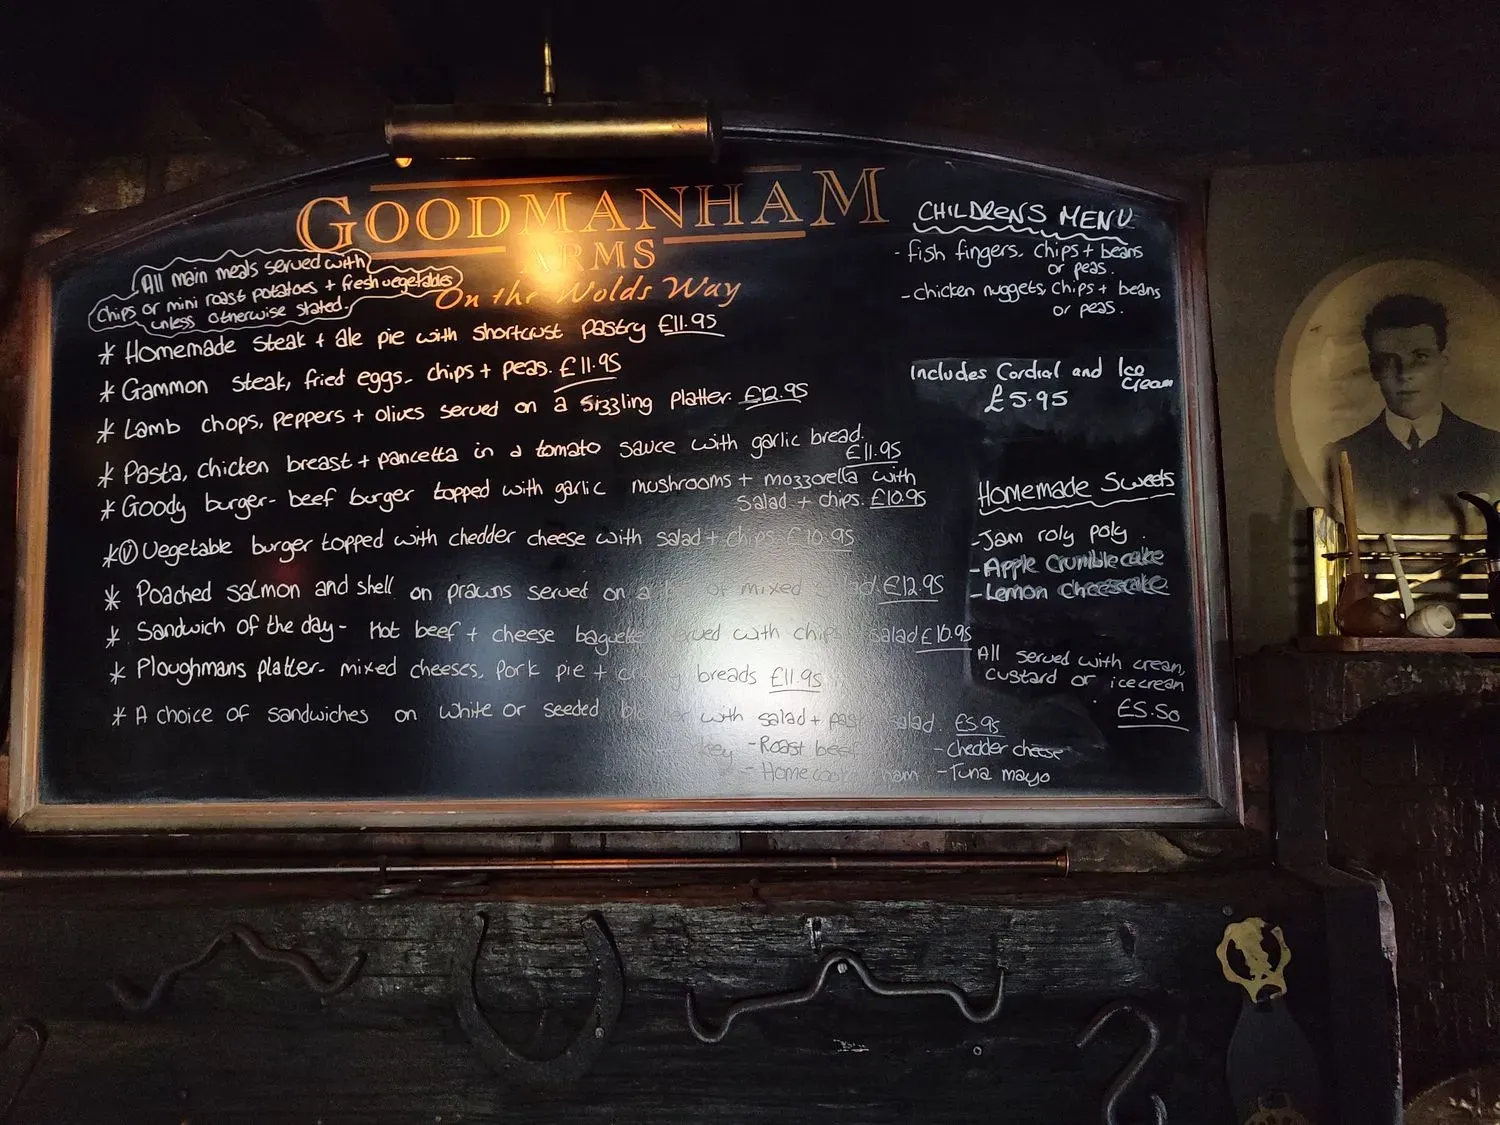 GOODMANHAM
ARMS
On the Wolds Way
All main meals served with
chips or mini roast potatoes + fresh vegetables
unless otherwise stated.
* Homemade steak + Ale pie with shortcrust pastry £11.95
* Gammon steak, fried eggs, chips + peas. £11.95
* Lamb chops, peppers + olives served on a sizzling platter. £12.95
* Pasta, chicken breast + pancetta in a tomato sauce with garlic bread.
£11.95
* Goody burger- beef burger topped with garlic mushrooms + mozzorella with
salad + chips. £10.95
* (V) Vegetable burger topped with chedder cheese with salad + chips £10.95
* Poached salmon and shell on prawns served on a mixed £12.95
* Sandwich of the day - Hot beef + cheese baguette served with chips salad £10.95
* Ploughmans platter- mixed cheeses, pork pie + breads £11.95
* A choice of sandwiches on white or seeded with salad + salad. £5.95
- Roast beef - chedder cheese
- Home ham - Tuna mayo
CHILDRENS MENU
- fish fingers, chips + beans
or peas.
- chicken nuggets, chips + beans
or peas.
Includes Cordial and Ice
Cream
£5.95
Homemade Sweets
- Jam roly poly.
- Apple Crumble cake
- Lemon cheesecake
All served with cream,
custard or icecream
£5.50